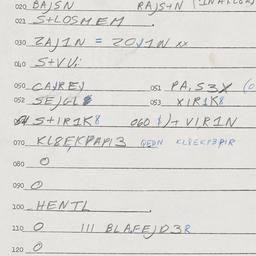 020 BAJSN RAJS+N
021 S+LOSMEM
030 ZAJ1N = ZOJ1N
040 S+VVi
050 CAJREJ 051 PA,S3X
052 SEJGL 053 XIR1K8
S+IR1K8 060 VIR1N
070 KL8E,KPAPI3 KL8EKP3PIR
080 O
090 O
100 HENTL
110 O 111 BLAFEJD3R
120 O